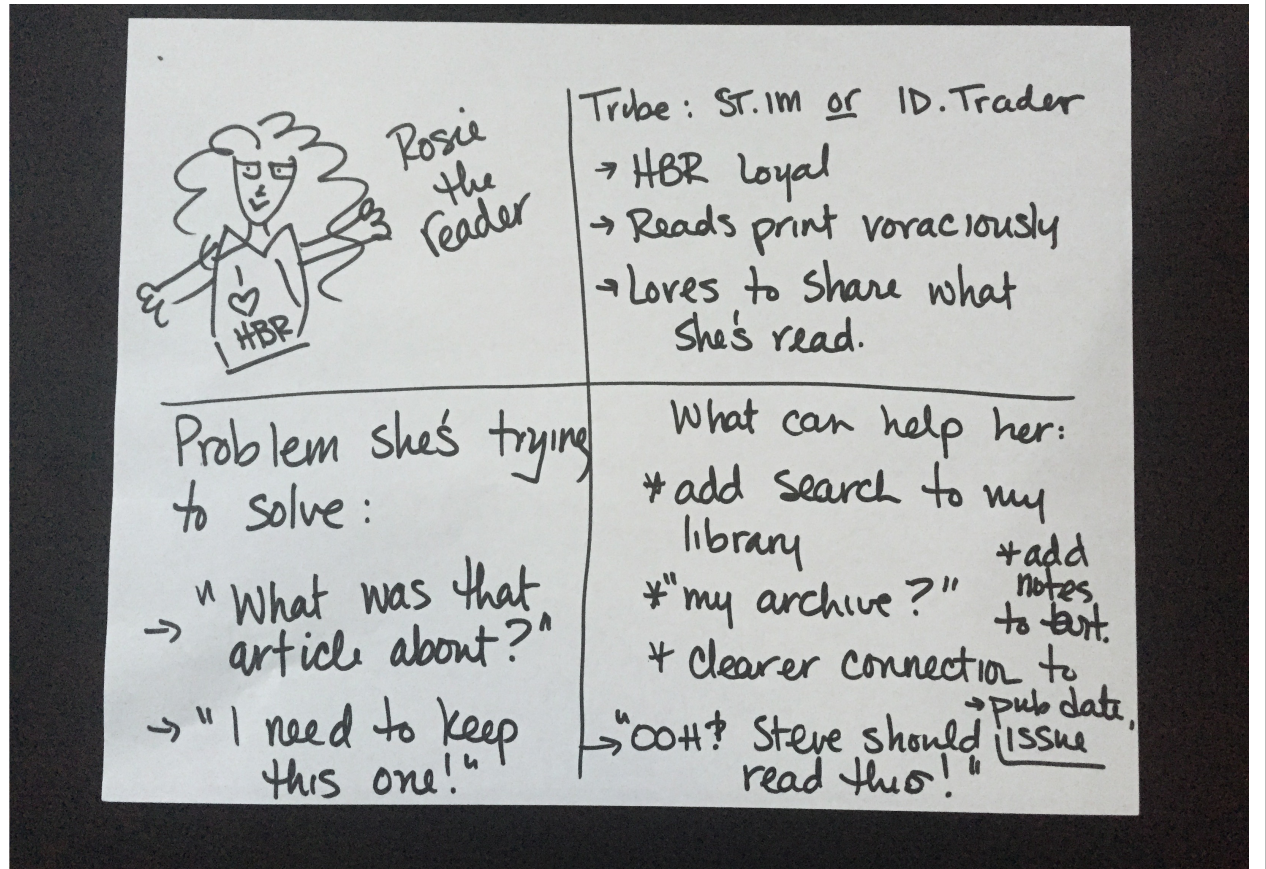 Rosie
the
reader
I
♡
HBR
Tribe: ST.IM or ID.Trader
→ HBR Loyal
→ Reads print voraciously
→ Loves to share what
she's read.
Problem she's trying
to solve:
→ "What was that
article about?"
→ "I need to keep
this one!"
What can help her:
* add search to my
library
* "my archive?"
* add
notes
to
* clearer connection to
→ pub date,
issue
→ "OOH! Steve should
read this!"